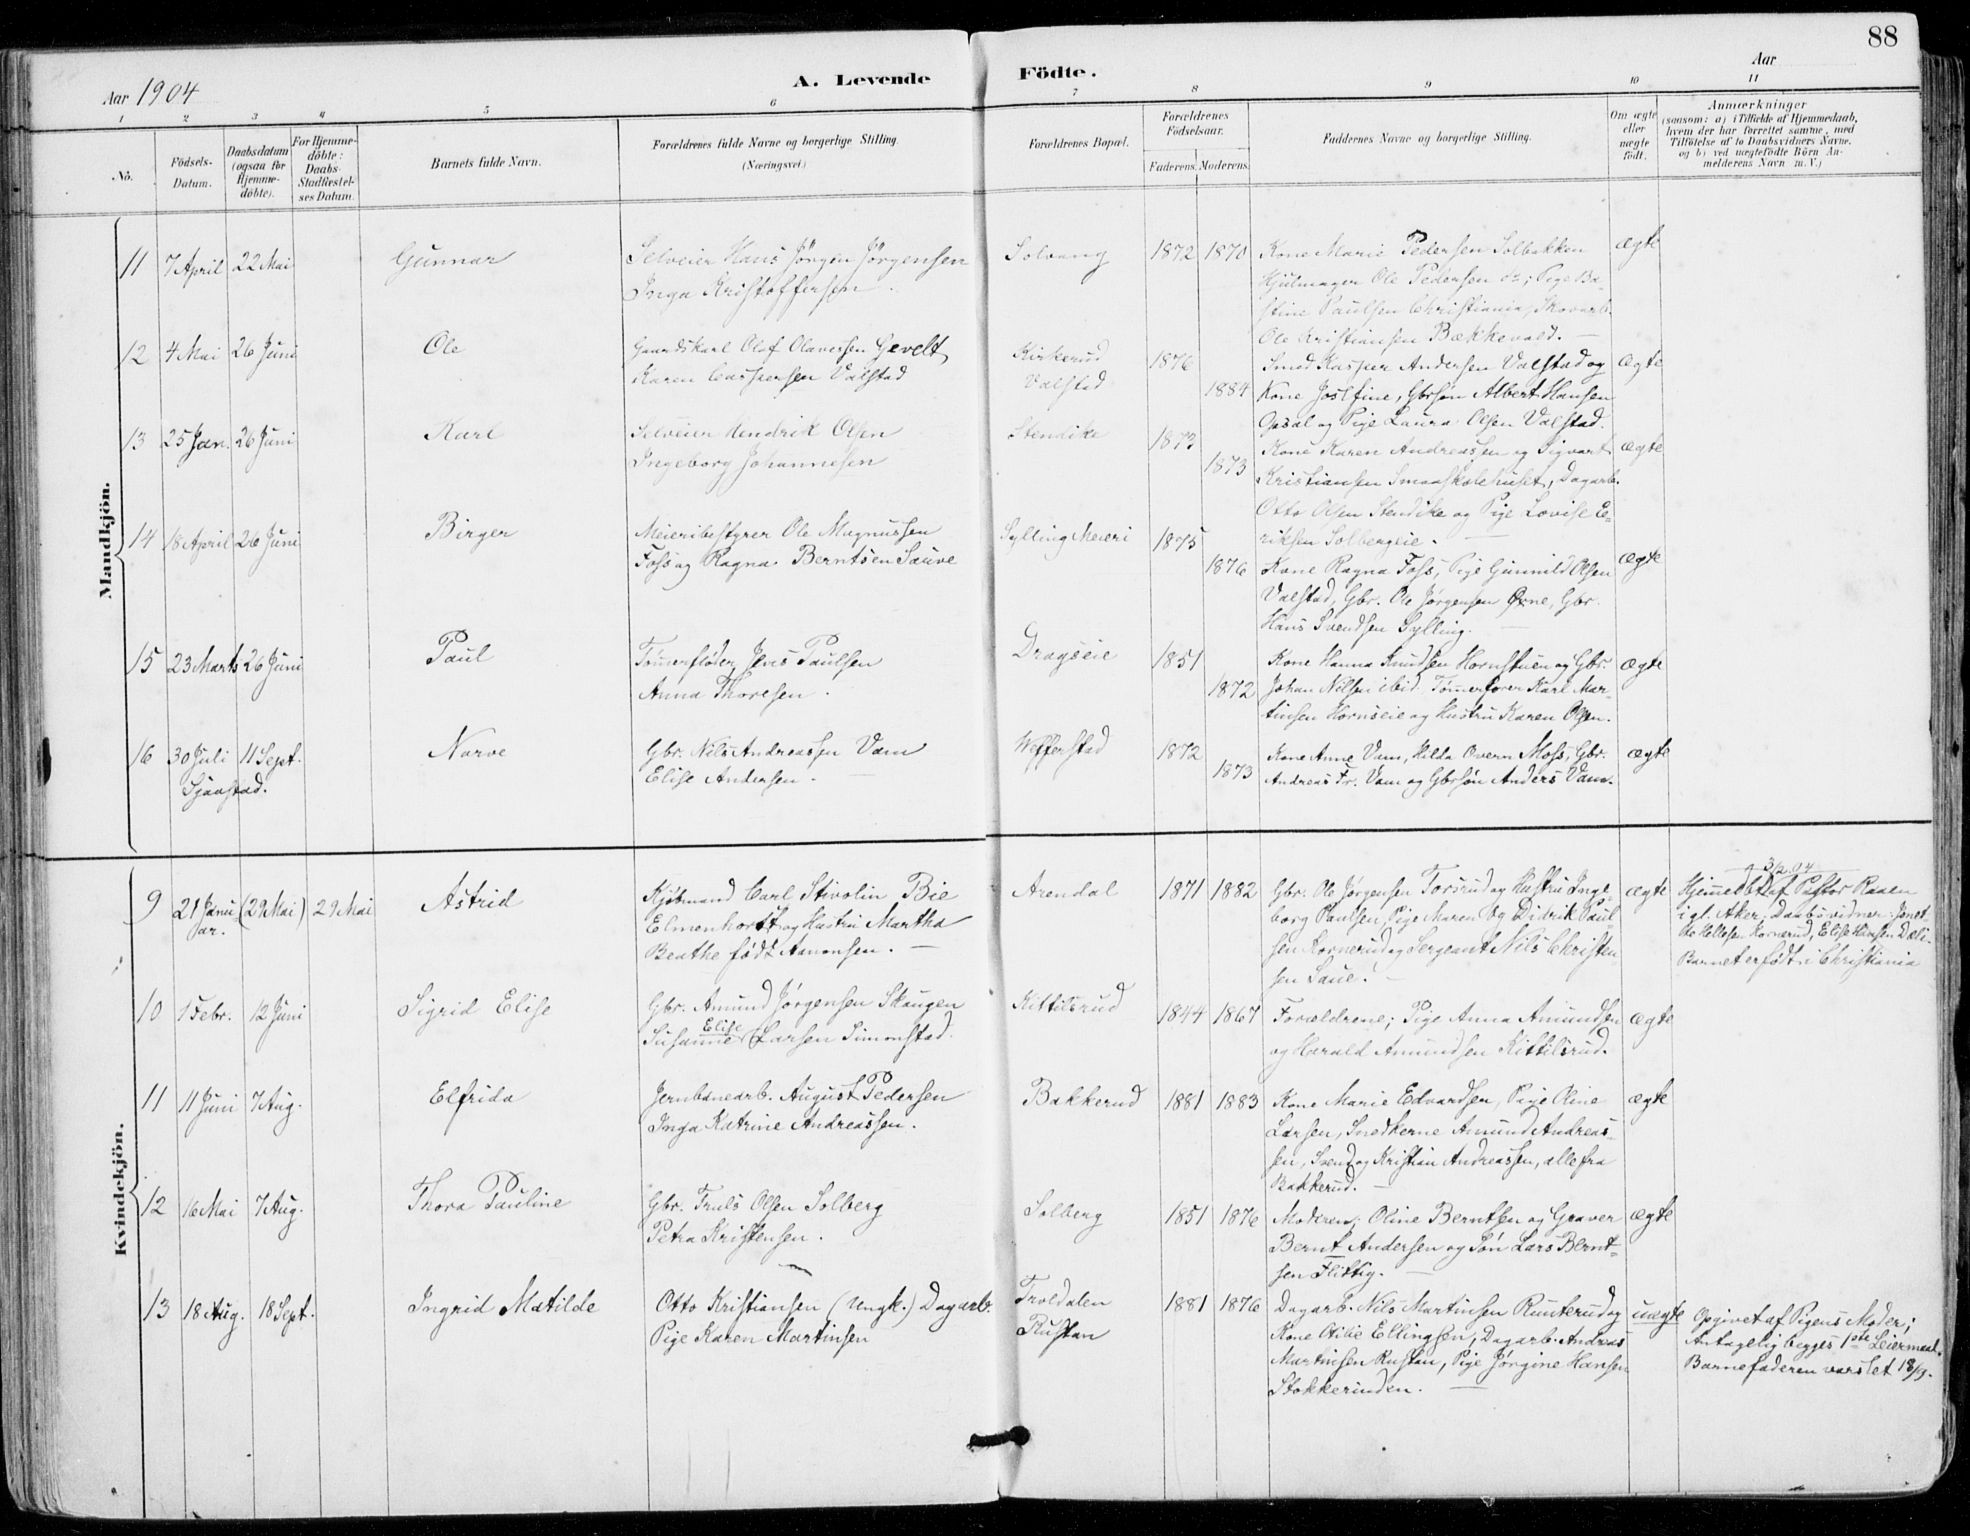 88
Aar 1904
A. Levende Födte.
Aar
1 2 3 4 5 6 7 8 9 10 11
No.
Födsels-Datum.
Daabsdatum (ogsaa for Hjemme-döbte).
For Hjemme-döbte: Daabs-Stadfæstel-ses Datum.
Barnets fulde Navn.
Forældrenes fulde Navne og borgerlige Stilling.
(Næringsvei.)
Forældrenes Bopæl.
Forældrenes Födselsaar.
Faderens. Moderens.
Faddernes Navne og borgerlige Stilling.
Om ægte eller uægte födt.
Anmærkninger
(saasom: a) i Tilfælde af Hjemmedaab,
hvem der har forrettet samme, med
Tilföielse af to Daabsvidners Navne,
og b) ved uægtefödte Börn An-
melderens Navn m. V.)
Mandkjön.
11 7 April 22 Mai Gunnar
Selveier Hans Jörgen Jörgensen
Inga Kristoffersen.
Solvang 1872 1870
Kone Marie Pedersen Solbakken
Hjulmager Ole Pedersen do; Pige Ba-
stine Paulsen Christiania, Skovarb.
Ole Kristiansen Bækkevold.
ægte
12 4 Mai 26 Juni Ole
Gaardskarl Olaf Olavessen Gevelt
Karen Caspersen Valstad
Kirkerud
Valstad
1876 1884
Smed Kasper Andersen Valstad og
Kone Josefine, Gbrsøn Albert Hansen
Opsal og Pige Laura Olsen Valstad.
Ægte
13 25 Jan. 26 Juni Karl
Selveier Hendrik Olsen
Ingeborg Johannesen
Stendike 1873 1873
Kone Karen Andreassen og Sigvart
Kristiansen Smaaskolehuset, Dagarb.
Otto Olsen Stendike og Pige Lovise E-
riksen Solbergeie.
ægte
14 18 April 26 Juni Birger
Meieribestyrer Ole Magnussen
Foss og Ragna Berntsen Sauve
Sylling Meieri 1875 1876
Kone Ragna Foss, Pige Gunnild Olsen
Valstad, Gbr. Ole Jørgensen Øvne, Gbr.
Hans Svendsen Sylling.
ægte
15 23 Marts 26 Juni Paul
Tømerfløder Jens Paulsen
Anna Thoresen.
Dragseie 1851 1872
Kone Hanna Knudsen Hornstuen og Gbr.
Johan Nilsen ibid. Tømerfører Karl Mar-
tinsen Hornseie og Hustru Karen Olsen.
ægte
16 30 Juli 11 Sept. Narve
Sjaastad.
Gbr. Nils Andreassen Vam
Elise Andersen.
Wefferstad 1872 1873
Kone Anne Vam, Hilda Overn Moss, Gbr.
Andreas Fr. Vam og Gbrsøn Anders Vam.
ægte
Kvindekjön.
9 21 Januar. (29 Mai) 29 Mai Astrid
Kjøbmand Carl Stivolin Bie
Elmenhortt og Hustru Martha
Beathe født Aamonsen.
Arendal 1871 1882
Gbr. Ole Jørgensen Torsrud og Hustru Inge
borg Paulsen, Pige Maren og Didrik Paul
sen Kornerud og Sergeant Nils Christen
sen Saue.
ægte
3/2 04
Hjemedøbt af Pastor Raaen
i gl. Aker; Daabsvidner: Janet-
te Hellesen Kornerud, Elise Hansen Dæli.
Barnet er født i Christiania
10 1 Febr. 12 Juni Sigrid Elise
Gbr. Amund Jørgensen Skaugen
Susanne Elise Larsen Simonstad.
Kittilsrud 1844 1867
Forældrene; Pige Anna Amundsen
og Harald Amundsen Kittilsrud.
ægte
11 11 Juni 7 Aug. Elfrida
Jernbanearb. August Pedersen
Inga Katrine Andreassen.
Bakkerud 1881 1883
Kone Marie Edvardsen, Pige Oline
Larsen, Snedkerne Amund Andreas-
sen, Svend og Kristian Andreassen, alle fra
Bakkerud.
ægte
12 16 Mai 7 Aug. Thora Pauline
Gbr. Truls Olsen Solberg
Petra Kristensen.
Solberg 1851 1876
Moderen; Oline Berntsen og Graver
Bernt Andersen og Søn Lars Bernt-
sen Flittig.
ægte
13 18 Aug. 18 Sept. Ingrid Matilde
Otto Kristiansen (Ungk.) Dagarb.
Pige Karen Martinsen
Troldalen
Rustan
1881 1876
Dagarb. Nils Martinsen Runterud og
Kone Otilie Ellingsen, Dagarb. Andreas
Martinsen Rustan, Pige Jørgine Hansen
Stokkerinden.
uægte
Opgivet af Pigens Moder;
Antagelig begges 1ste Leiermaal.
Barnefaderen varslet 18/9.